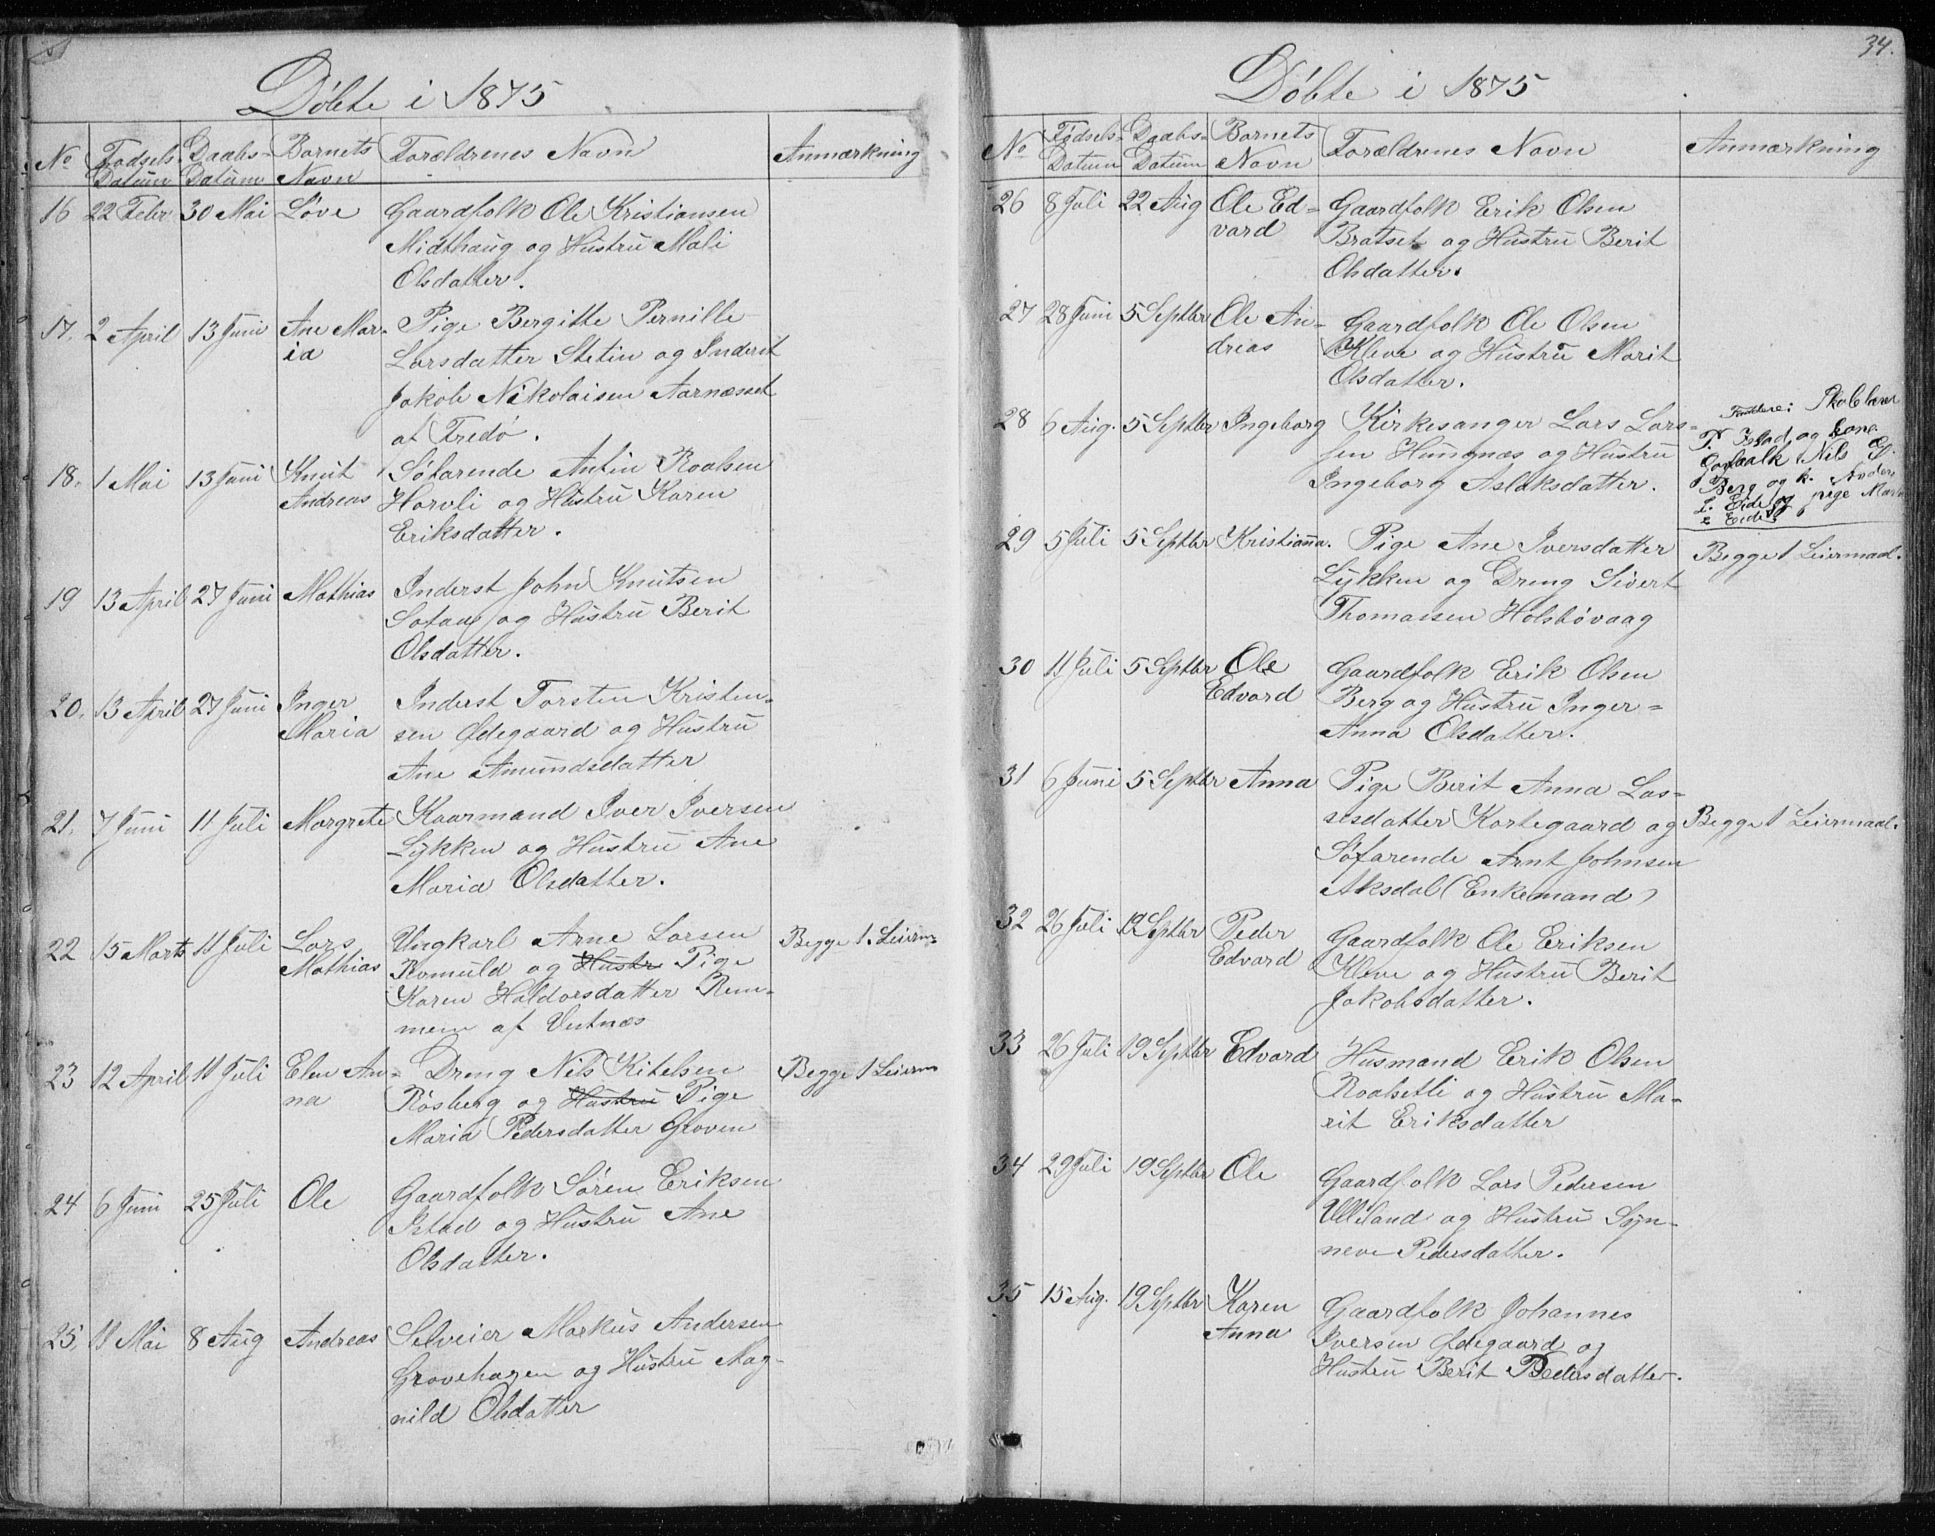 Döbte i 1875
No Fødsels- Daabs- Barnets Forældrenes Navn Anmærkning
Datum Datum Navn
16 22 Febr 30 Mai Löve Gaardfolk Ole Kristiansen
Midthaug og Hustru Mali
Olsdatter.
17. 2 April 13 Juni Ane Mar- Pige Bergitte Pernille
ia Larsdatter Stetin og Inderst
Jakob Nikolaisen Aarnæsset
af Fredö.
18. 1 Mai 13 Juni Knut Söfarende Antin Roalsen
Andreas Harvli og Hustru Karen
Eriksdatter.
19 13 April 27 Juni Mathias Inderst John Knutsen
og Hustru Berit
Olsdatter.
20. 13 April 27 Juni Inger Inderst Torsten Kristen-
Maria sen Ødegaard og Hustru
Ane Amundsdatter
21. 7 Juni 11 Juli Margrete Kaarmand Iver Iversen
Lykken og Hustru Ane
Maria Olsdatter.
22 15 Marts 11 Juli Lars Ungkarl Arne Larsen Begge 1. Leierm
Mathias Romuld og Hustr Pige
Karen Haldorsdatter Rem-
mem af Vestnæs
23 12 April 11 Juli Elen An- Dreng Nils Kitelsen Begge 1 Leierm
na Rösberg og Hustru Pige
Maria Pedersdatter Groven
24 6 Juni 25 Juli Ole Gaardfolk Sören Eriksen
Istad og Hustru Ane
Olsdatter.
25. 11 Mai 8 Aug Andreas Selveier Markus Andersen
Grovehagen og Hustru Mag-
nild Olsdatter
34.
Döbte i 1875
No Fødsels- Daabs- Barnets Forældrenes Navn Anmærkning
Datum Datum Navn
26 8 Juli 22 Aug Ole Ed- Gaardfolk Erik Olsen
vard Bratset og Hustru Berit
Olsdatter.
27 28 Juni 5 Septbr Ole An- Gaardfolk Ole Olsen
dreas Kleve og Hustru Marit
Olsdatter.
28 6 Aug. 5 Septbr Ingeborg Kirkesanger Lars Lars-
sen Hungnæs og Hustru
Ingeborg Aslaksdatter.
Faddere: Skolelærer
P. Istad og kone
Garfaalk Nils E.
Berg og k. Anders
L. Eide og pige Marit
Eide
29 5 Juli 5 Septbr Kristianna. Pige Ane Iversdatter Begge 1 Leiermaal.
Lykken og Dreng Sivert
Thomassen Holsbövaag
30 11 Juli 5 Septbr Ole Gaardfolk Erik Olsen
Edvard Berg og Hustru Inger-
Anna Olsdatter.
31 6 Juni 5 Septbr Anna Pige Berit Anna Las-
sesdatter Kortegaard og Begge 1 Leiermaal.
Söfarende Arnt Johnsen
Aksdal (Enkemand)
32 26 Juli 19 Septbr Peder Gaardfolk Ole Eriksen
Edvard Kleve og Hustru Berit
Jakobsdatter.
33 26 Juli 19 Septbr Edvard Husmand Erik Olsen
Roalsetli og Hustru Ma-
rit Eriksdatter
34 29 Juli 19 Septbr Ole Gaardfolk Lars Pedersen
Ulleland og Hustru Syn-
neve Pedersdatter.
35 15 Aug. 19 Septbr Karen Gaardfolk Johannes
Anna Iversen Ødegaard og
Hustru Berit Pedersdatter.